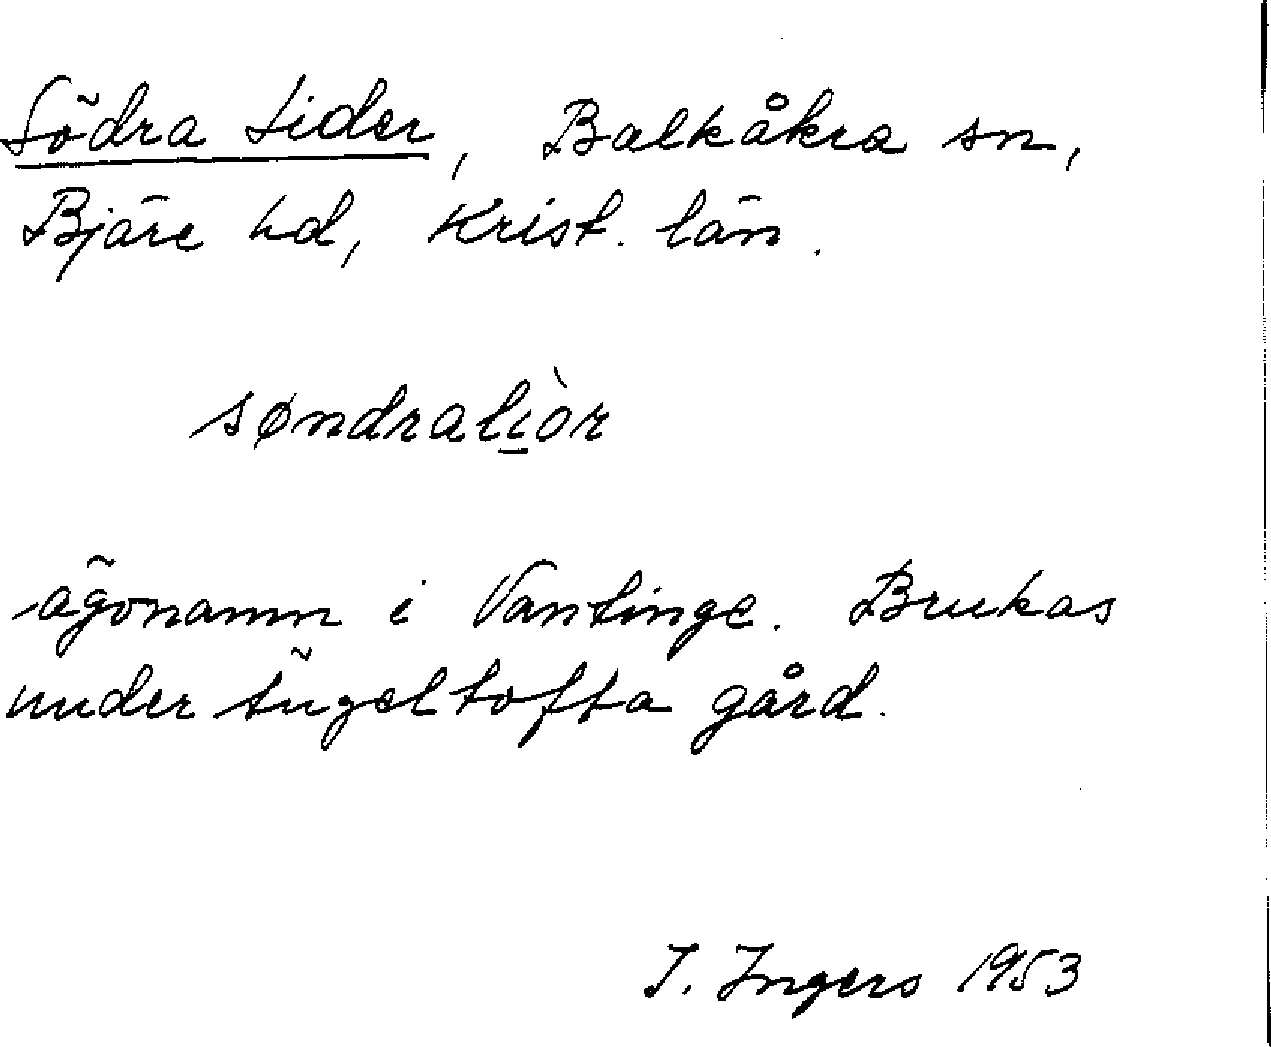 Södra Lider, Balkåkra sn,
Bjäre hd, Krist. län.
søndralìọr
ägonamn i Vantinge. Brukas
under Ängeltofta gård.
I. Ingers 1953